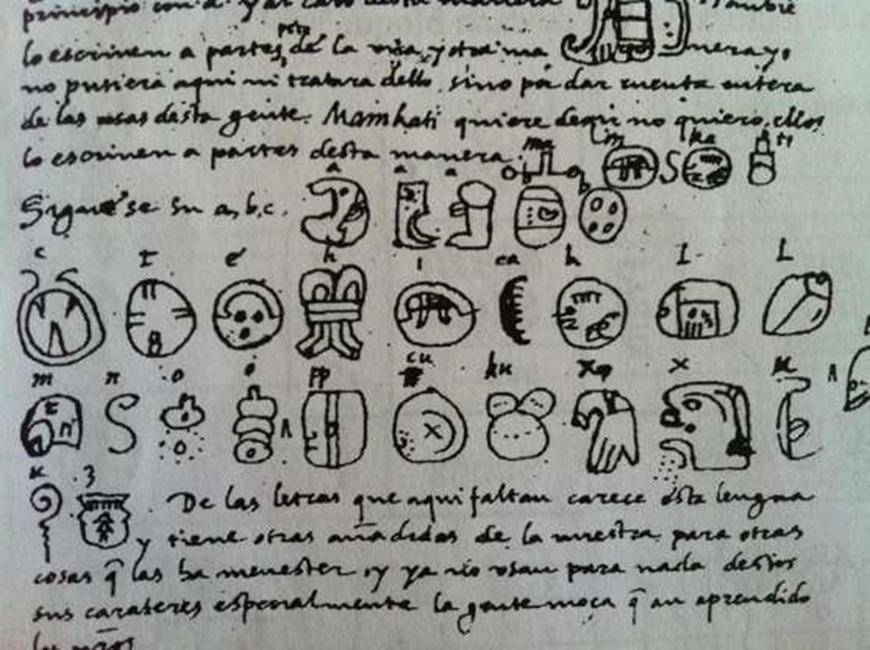 principio con a. y al cabo desta manera
lo escriven a partes, pero de la una y otra ma nera, yo
no pusiera aqui ni tratara dello sino por dar cuenta entera
de las cosas desta gente. Mainkati quiere dezir no quiero, ellos
lo escriven a partes desta manera. ma i n ka ti
Siguese su a, b, c. a a a b b
c t e h i ca k l l
m n o o pp cu ku x x u
u z De las letras que aqui faltan carece esta lengua
y tiene otras añadidas de la nuestra para otras
cosas q̃ las ha menester, y ya no usan para nada destos
sus carateres especialmente la gente moça q̃ an aprendido
los nros